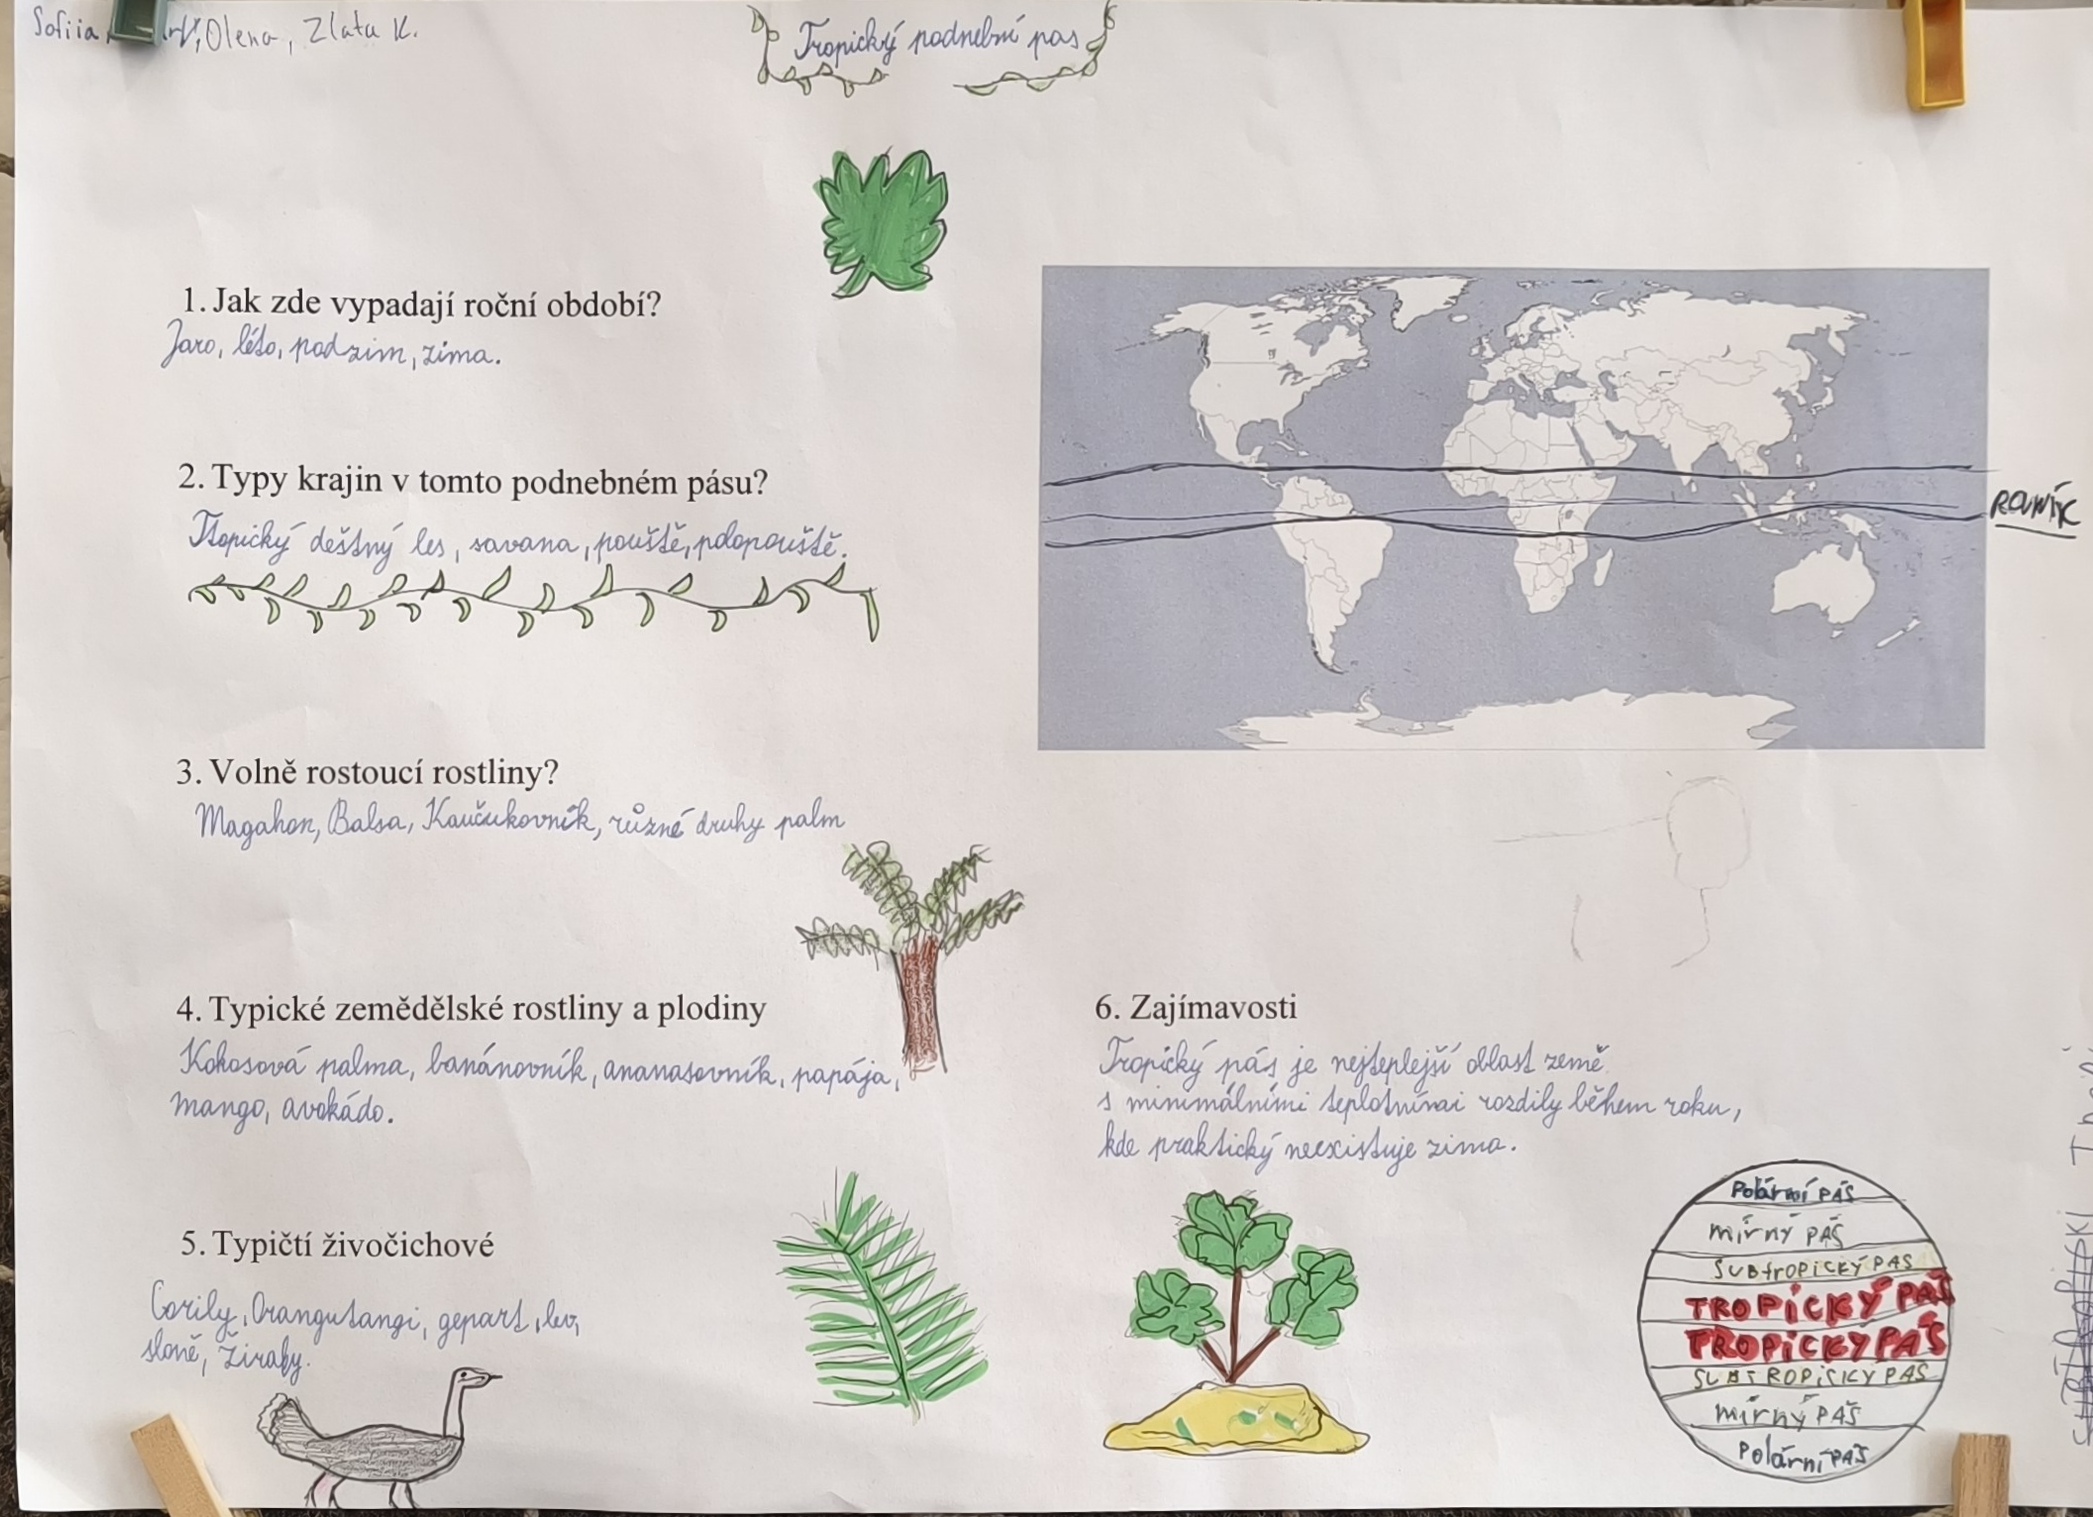 Sofiia, Olena, Zlata K.
Tropický podnební pas
1. Jak zde vypadají roční období?
Jaro, léto, podzim, zima.
2. Typy krajin v tomto podnebném pásu?
Tropický deštný les, savana, pouště, polopouště.
3. Volně rostoucí rostliny?
Magahon, Balsa, Kaučukovník, různé druhy palm
ROVNÍK
4. Typické zemědělské rostliny a plodiny
Kokosová palma, banánovník, ananasovník, papája,
mango, avokádo.
5. Typičtí živočichové
Gorily, Orangutangi, gepart, lev,
sloně, žirafy.
6. Zajímavosti
Tropický pás je nejteplejší oblast země
s minimálními teplotnímai rozdily během roku,
kde praktický neexistuje zima.
Polární PÁŠ
mírný PÁŠ
SUBtROPICKÝ PAS
TROPÍCKÝ PAŠ
TROPiCKÝ PÁŠ
SUBTROPiCKÝ PAŠ
mírný PÁŠ
Polární PÁŠ